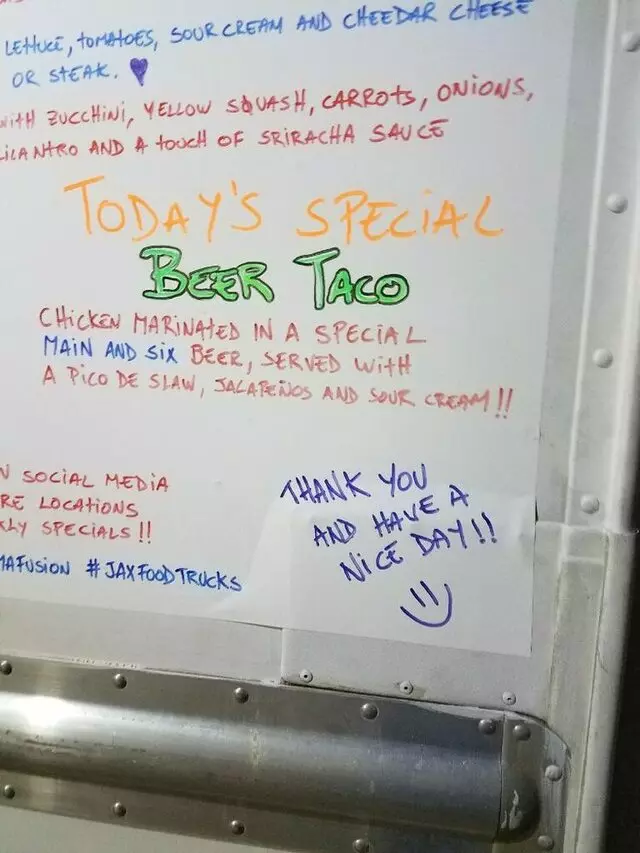 LETTUCE, TOMATOES, SOUR CREAM AND CHEEDAR CHEESE
OR STEAK.
WITH ZUCCHINI, YELLOW SQUASH, CARROTS, ONIONS,
CILANTRO AND A TOUCH OF SRIRACHA SAUCE
TODAY'S SPECIAL
BEER TACO
CHICKEN MARINATED IN A SPECIAL
MAIN AND SIX BEER, SERVED WITH
A PICO DE SLAW, JALAPEÑOS AND SOUR CREAM!!
N SOCIAL MEDIA
RE LOCATIONS
KLY SPECIALS!!
MAFUSION #JAXFOODTRUCKS
THANK YOU
AND HAVE A
NICE DAY!!